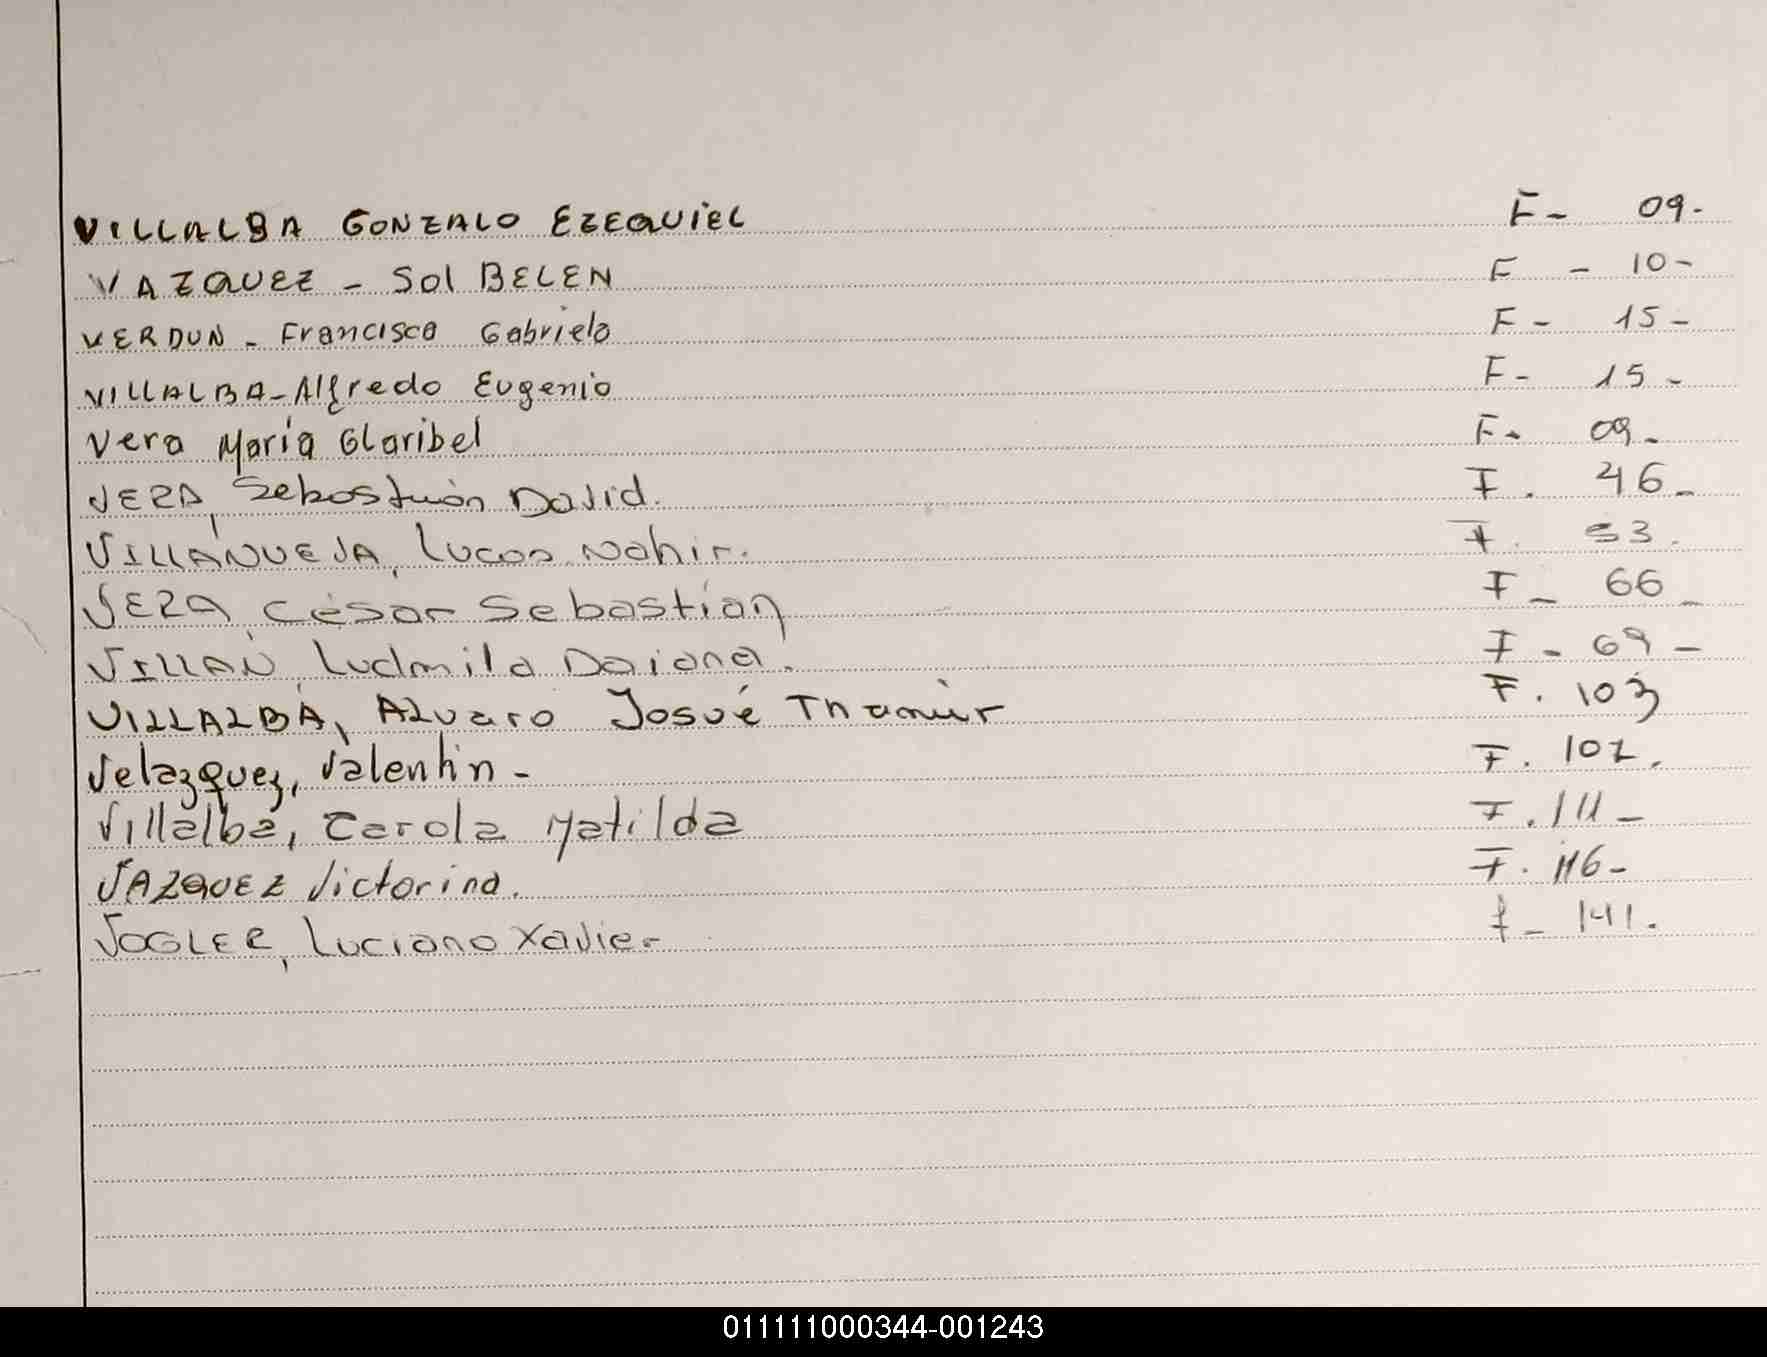 VILLALBA GONZALO EZEQUIEL F- 09-
VAZQUEZ - Sol BELEN F - 10-
VERDUN - Francisca Gabriela F- 15-
VILLALBA-Alfredo Eugenio F- 15-
Vera María Claribel F- 09-
VERA, Sebastián David. F. 46-
VILLANUEVA, Lucas Nahir. F. 53.
VERA, César Sebastián F- 66-
VILLAN, Ludmila Daiana. F - 69-
VILLALBA, Alvaro Josué Thamir F. 103
Velazquez, Valentin- F. 107.
Villalba, Carola Matilda F. 111-
VAZQUEZ Victorina. F. 116-
VOGLER, Luciano Xavier f- 141.
011111000344-001243